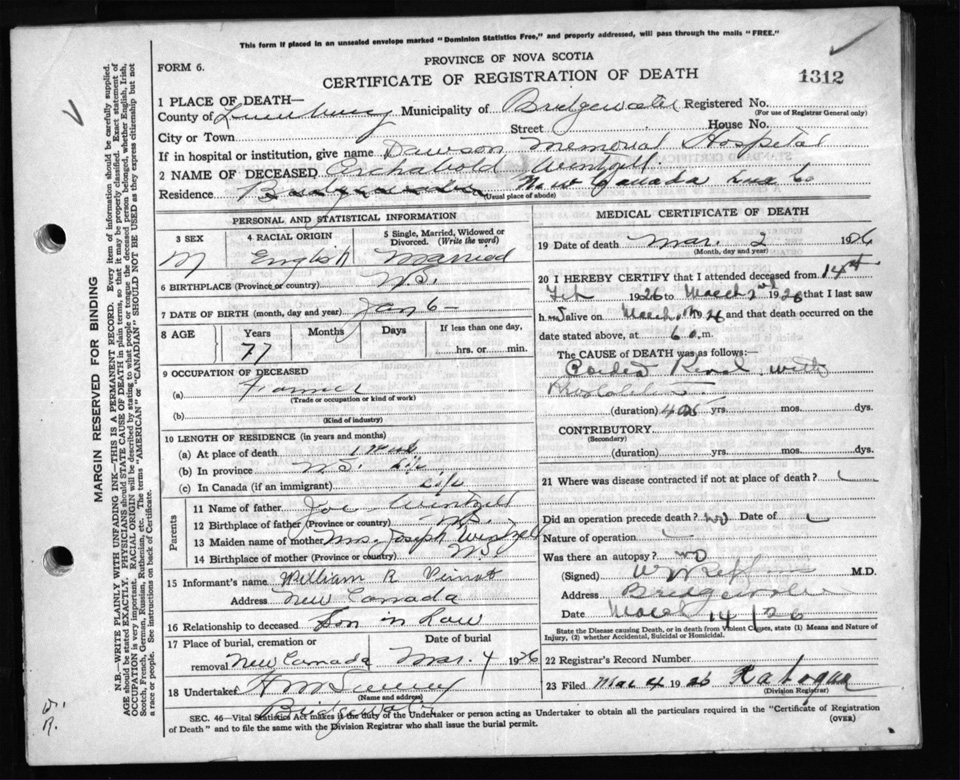 This form if placed in an unsealed envelope marked "Dominion Statistics Free," and properly addressed, will pass through the mails "FREE."
FORM 6.
PROVINCE OF NOVA SCOTIA
CERTIFICATE OF REGISTRATION OF DEATH
1312
1 PLACE OF DEATH—
County of Lunenburg Municipality of Bridgewater Registered No.
(For use of Registrar General only)
City or Town Street House No.
If in hospital or institution, give name Dawson Memorial Hospital
2 NAME OF DECEASED Archabold Wentzell
Residence Bridgewater New Canada Lun Co
(Usual place of abode)
PERSONAL AND STATISTICAL INFORMATION
3 SEX 4 RACIAL ORIGIN 5 Single, Married, Widowed or Divorced. (Write the word)
M English Married
6 BIRTHPLACE (Province or country) N.S.
7 DATE OF BIRTH (month, day and year) Jan 6
8 AGE Years Months Days If less than one day,
77 hrs. or min.
9 OCCUPATION OF DECEASED
(a) Farmer
(Trade or occupation or kind of work)
(b)
(Kind of industry)
10 LENGTH OF RESIDENCE (in years and months)
(a) At place of death
(b) In province N.S. life
(c) In Canada (if an immigrant) life
Parents
11 Name of father Joe Wentzell
12 Birthplace of father (Province or country) N.S.
13 Maiden name of mother Mrs. Joseph Wentzell
14 Birthplace of mother (Province or country) N.S
15 Informant's name William R
Address New Canada
16 Relationship to deceased Son in Law
17 Place of burial, cremation or removal New Canada Date of burial Mar. 4 1926
18 Undertaker
(Name and address)
Bridgewater
MEDICAL CERTIFICATE OF DEATH
19 Date of death Mar. 2 1926
(Month, day and year)
20 I HEREBY CERTIFY that I attended deceased from 14th
Feb 1926 to March 2nd 1926 that I last saw
h alive on March 26 and that death occurred on
date stated above, at 6 m.
The CAUSE of DEATH was as follows:—
(duration) yrs. mos. dys.
CONTRIBUTORY
(Secondary)
(duration) yrs. mos. dys.
21 Where was disease contracted if not at place of death?
Did an operation precede death? no Date of
Nature of operation
Was there an autopsy? no
(Signed) M.D.
Address Bridgewater
Date March 14/26
State the Disease causing Death, or in death from Violent Causes, state (1) Means and Nature of Injury, (2) whether Accidental, Suicidal or Homicidal.
22 Registrar's Record Number
23 Filed Mar 4 1926
(Division Registrar)
SEC. 46—Vital Statistics Act makes it the duty of the Undertaker or person acting as Undertaker to obtain all the particulars required in the "Certificate of Registration
of Death" and to file the same with the Division Registrar who shall issue the burial permit.
(OVER)
MARGIN RESERVED FOR BINDING
N.B.—WRITE PLAINLY WITH UNFADING INK—THIS IS A PERMANENT RECORD. Every item of information should be carefully supplied.
AGE should be stated EXACTLY. PHYSICIANS should STATE CAUSE OF DEATH in plain terms, so that it may be properly classified. Exact statement of
OCCUPATION is very important. RACIAL ORIGIN will be described by stating to what people or tongue the deceased person belonged, whether English, Irish,
Scotch, French, German, Russian, Ruthenian, etc. The terms "AMERICAN" or "CANADIAN" SHOULD NOT BE USED as they express citizenship but not
a race or people. See instructions on back of Certificate.